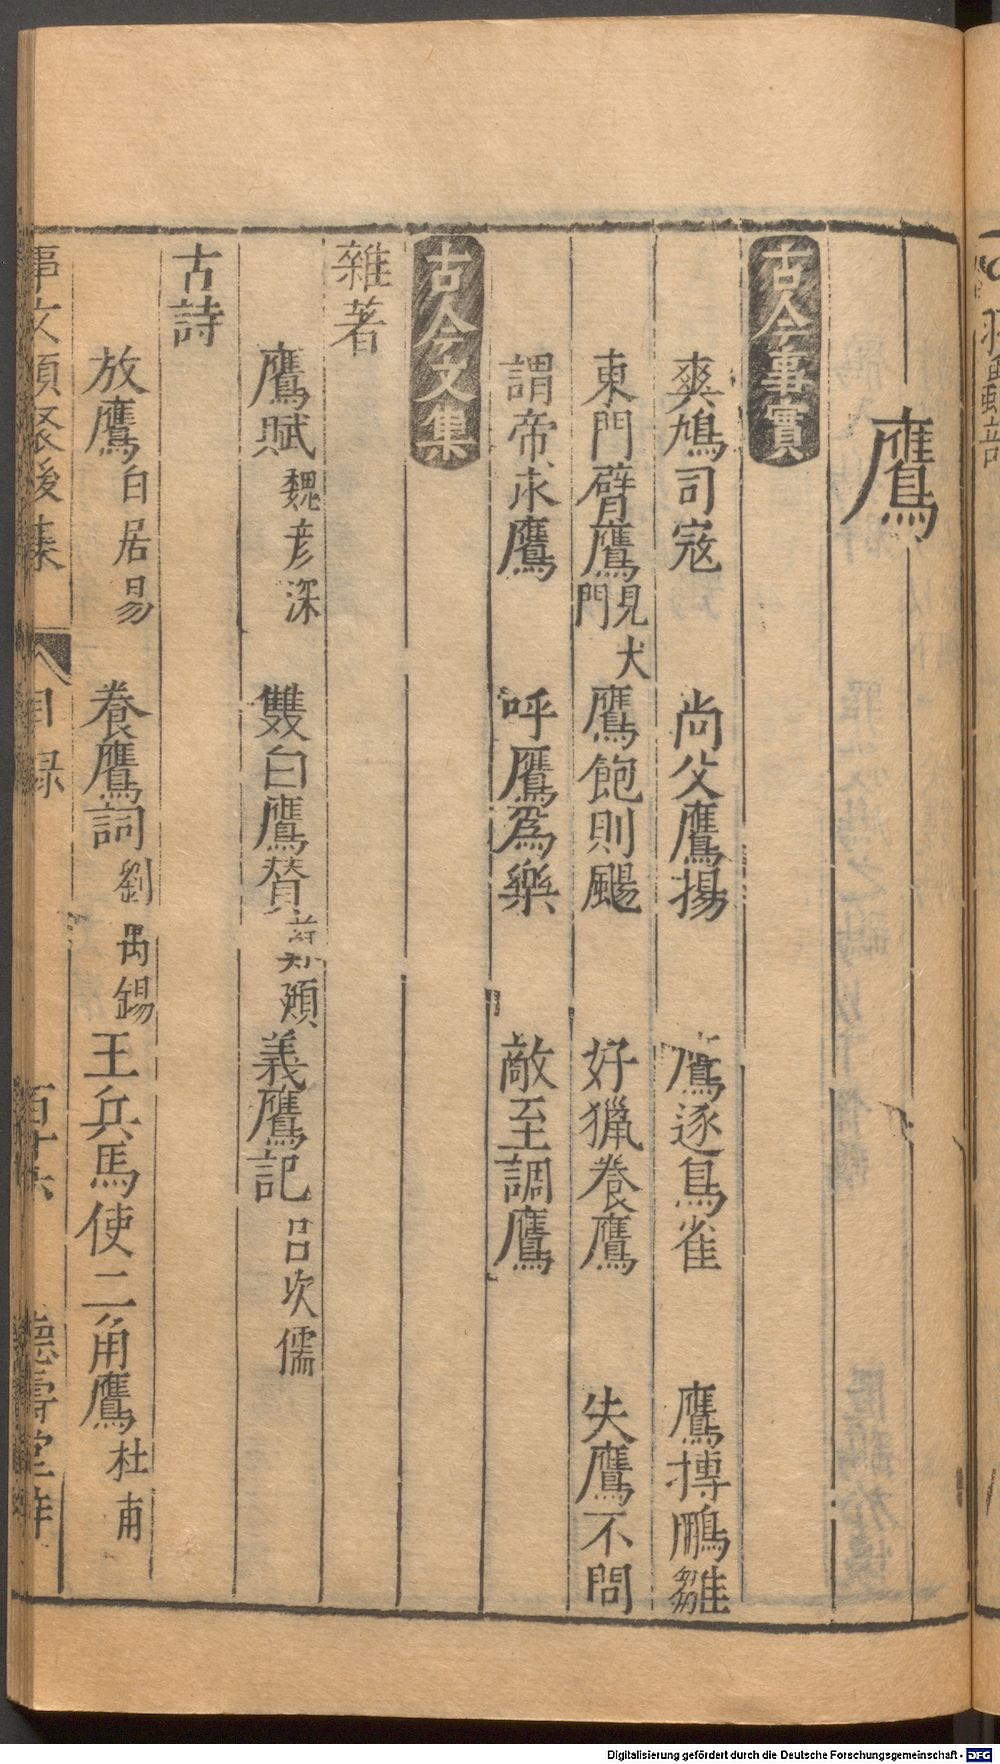 鷹
古今事實
爽鳩司寇 尚父鷹揚 鷹逐鳥雀 鷹摶鵬雛
東門臂鷹見犬門 鷹飽則颺 好獵養鷹 失鷹不問
謂帝求鷹 呼鷹爲樂 敵至調鷹
古今文集
雜著
鷹賦魏彦深 雙白鷹賛 義鷹記呂次儒
古詩
放鷹白居易 養鷹詞劉禹錫 王兵馬使二角鷹杜甫
事文類聚後集 目録 德壽堂梓
Digitalisierung gefördert durch die Deutsche Forschungsgemeinschaft - DFG